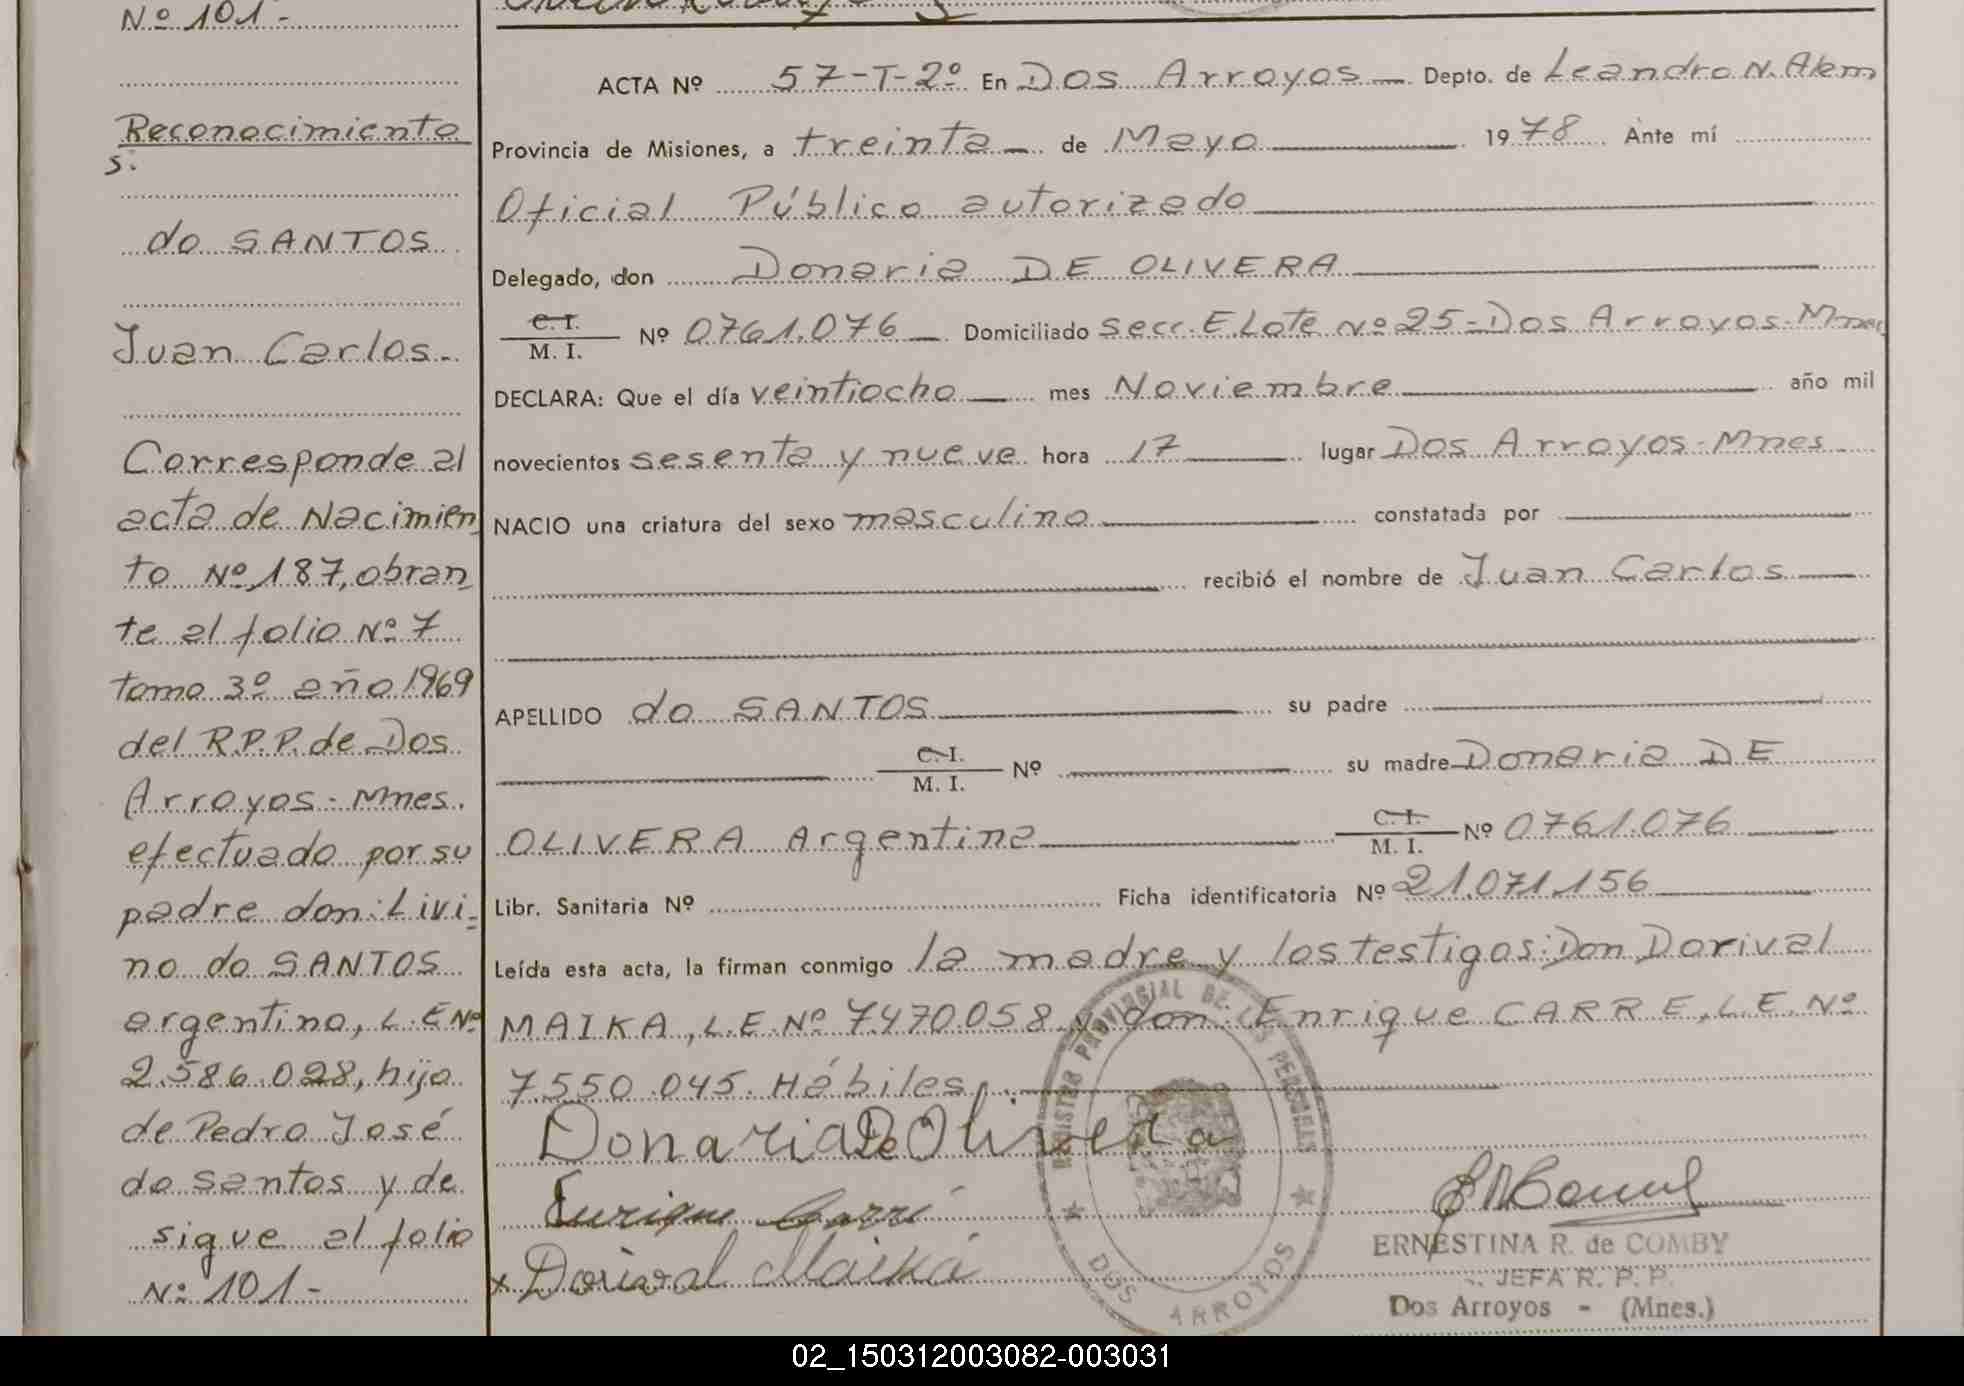 Nº 101-
Reconocimiento
s.
do SANTOS
Juan Carlos.
Corresponde al
acta de Nacimien
to Nº 187, obran_
te al folio Nº 7
tomo 3º año 1969
del R.P.P. de Dos
Arroyos - Mnes.
efectuado por su
padre don: Livi_
no do SANTOS
argentino, L.E Nº
2.586.028, hijo
de Pedro José
do Santos y de
sigue al folio
Nº 101-
ACTA Nº 57-T-2º En Dos Arroyos Depto. de Leandro N. Alem
Provincia de Misiones, a treinta de Mayo 1978 Ante mí
Oficial Público autorizado
Delegado, don Donaria DE OLIVERA
C. I.
M. I. Nº 0761.076 Domiciliado secc. E Lote Nº 25-Dos Arroyos-Mnes
DECLARA: Que el día veintiocho mes Noviembre año mil
novecientos sesenta y nueve hora 17 lugar Dos Arroyos-Mnes
NACIO una criatura del sexo masculino constatada por
recibió el nombre de Juan Carlos
APELLIDO do SANTOS su padre
C. I.
M. I. Nº su madre Donaria DE
OLIVERA Argentina C. I. M. I. Nº 0761.076
Libr. Sanitaria Nº Ficha identificatoria Nº 21.071.156
Leída esta acta, la firman conmigo la madre y los testigos: Don Dorival
MAIKA, L.E. Nº 7.470.058 y don: Enrique CARRE, L.E. Nº
7.550.045. Hábiles,
Donaria De Olivera
Enrique Carré
x Dorival Maiká
REGISTRO PROVINCIAL DE LAS PERSONAS
DOS ARROYOS
ERNESTINA R. de COMBY
JEFA R. P. P.
Dos Arroyos - (Mnes.)
02_150312003082-003031